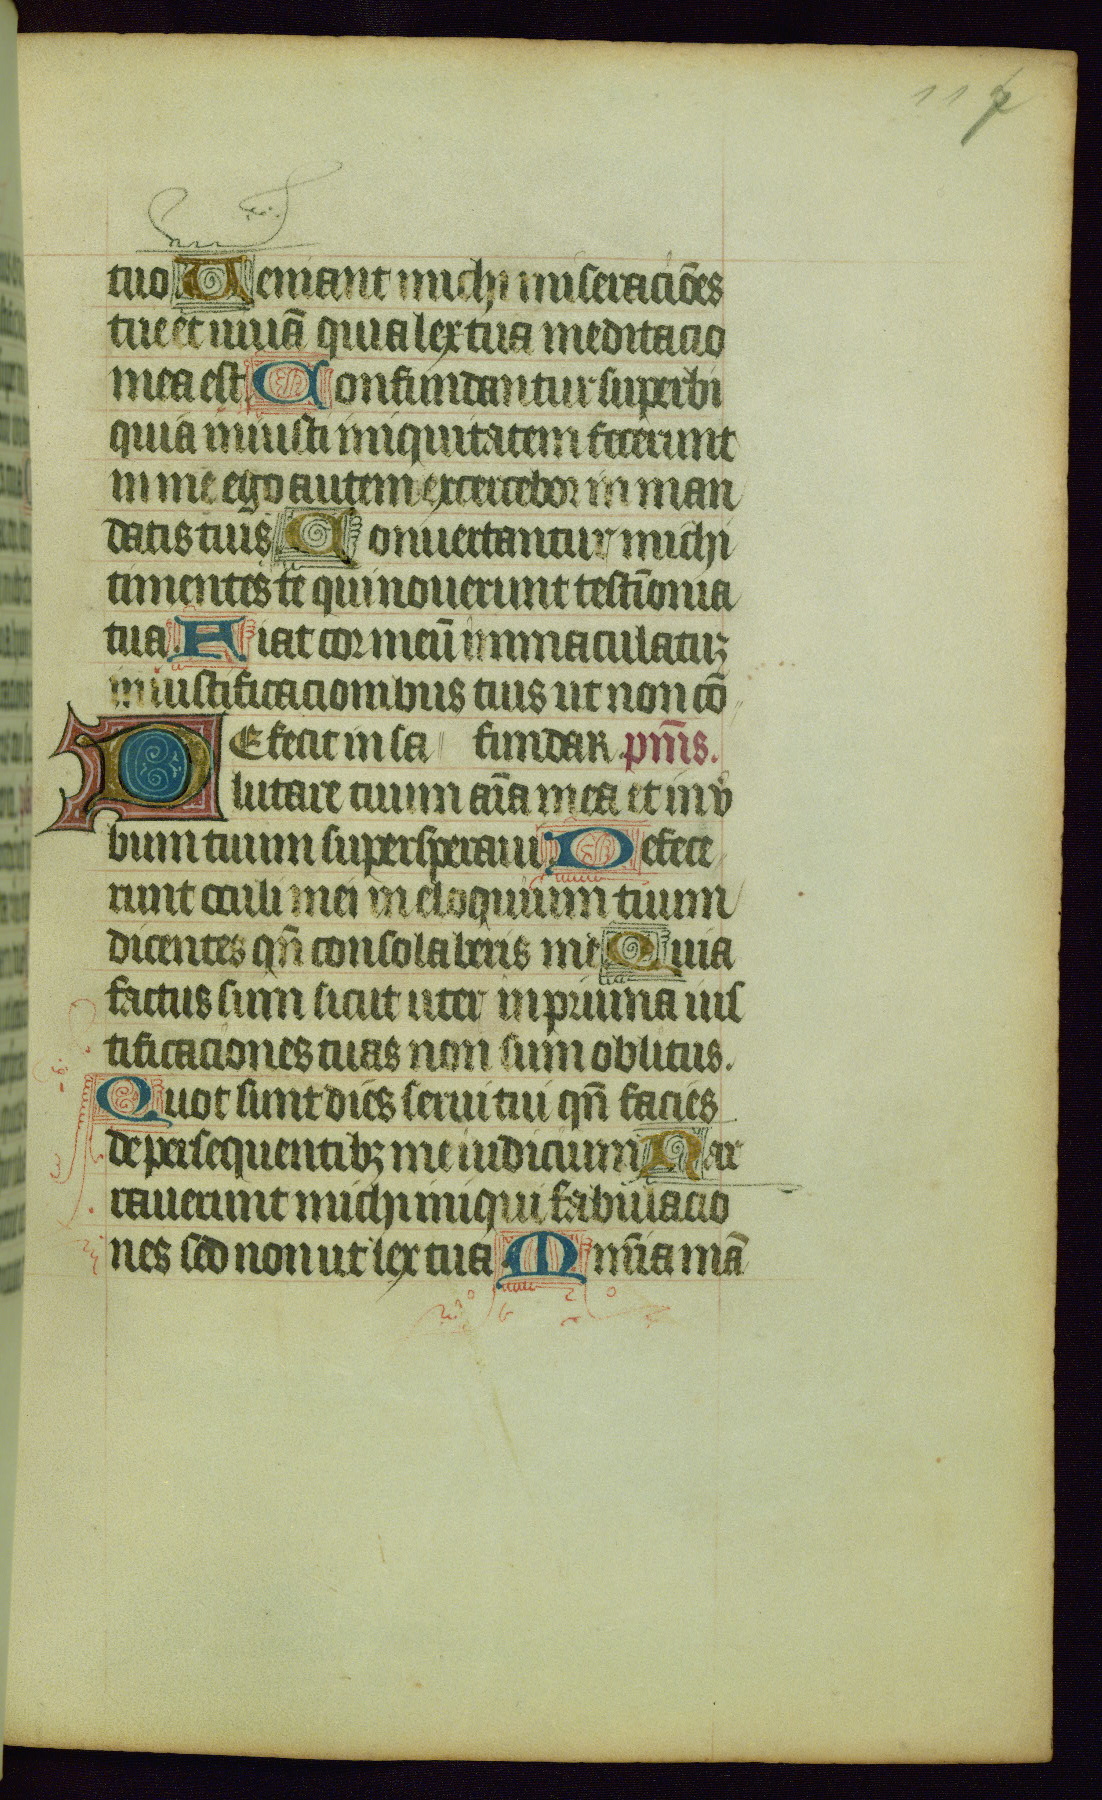 117
tuo Veniant michi miseraciões
tue et viuā quia lex tua meditacio
mea est Confundantur superbi
quia iniusti iniquitatem fecerunt
in me ego autem excercebor in man
datis tuis Conuertantur michi
timentes te qui nouerunt testīonia
tua Fiat cor meū immaculatuꝫ
in iustificacionibus tuis ut non cō
DEfecit in sa fundar pn̄is.
lutare tuum aīa mea et in v̾
bum tuum supersperaui Defece
runt oculi mei in eloquium tuum
dicentes qn̄ consolaberis me Quia
factus sum sicut uter in pruina ius
tificaciones tuas non sum oblitus.
Quot sunt dies serui tui qn̄ facies
de persequentibꝫ me iudicium Nar
rauerunt michi iniqui fabulacio
nes sed non ut lex tua Omn̄ia mā